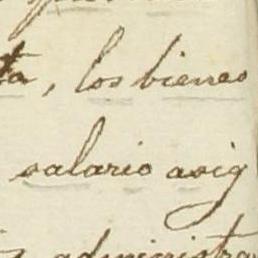 ta, los bienes
salario asig
administra